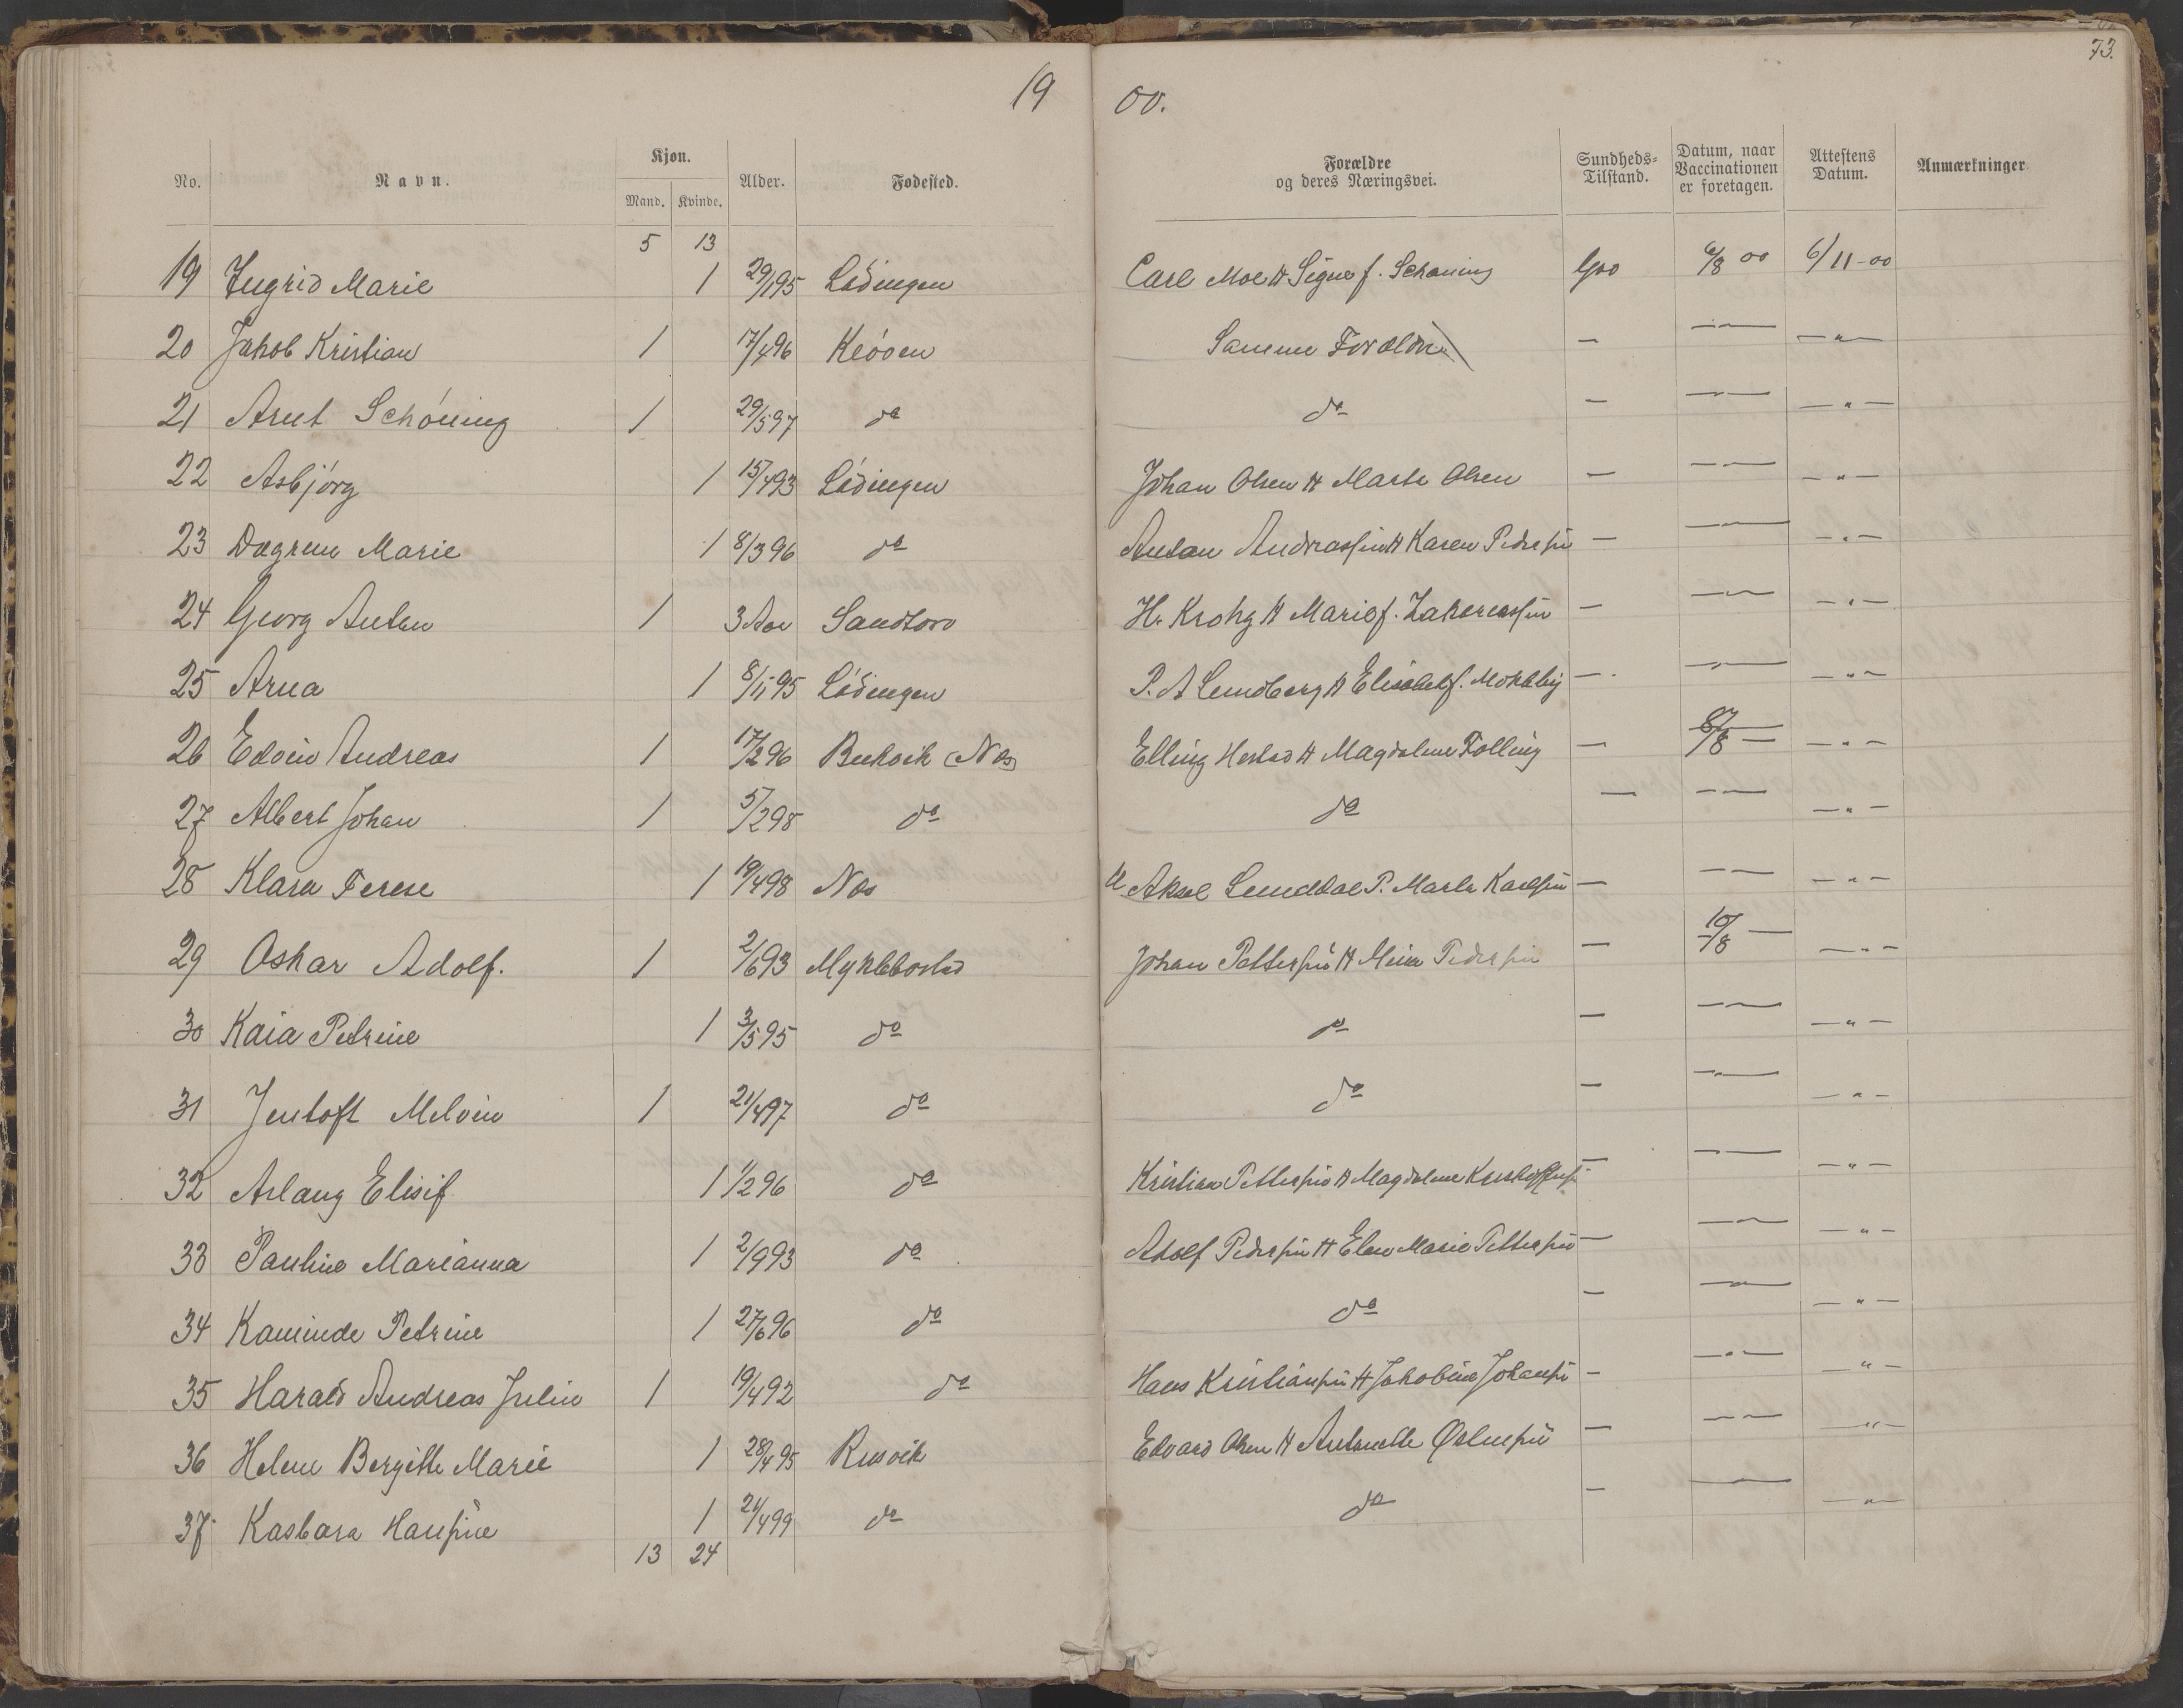 73.
19 00.
No. Navn. Kjøn. Mand. Kvinde. Alder. Fødested. Forældre og deres Næringsvei. Sundheds-Tilstand. Datum, naar Vaccinationen er foretagen. Attestens Datum. Anmærkninger
5 13
19 Ingrid Marie 1 29/1 95 Lödingen Carl Moe & Signe f. Schøning God 6/8 00 6/11-00
20 Jakob Kristian 1 17/4 96 Samme Forældre — —"— —"—
21 Arnt Schöning 1 29/5 97 do do — —"— —"—
22 Asbjörg 1 15/4 93 Lödingen Johan Olsen & Marte Olsen — —"— —"—
23 Dagrun Marie 1 8/3 96 do Anton Andreassen & Karen Pedersen — —"— —"—
24 Georg Anton 1 3 Aar Sandtorv H. Krohg & Marie f. Zakariassen — —"— —"—
25 Arna 1 8/11 95 Lödingen P. A Lundberg & Elisabet f. — —"— —"—
26 Edvin Andreas 1 17/2 96 (Næs) Elling & Magdalene Folling — 8/8 — —"—
27 Albert Johan 1 5/2 98 do do — —"— —"—
28 Klara Terese 1 19/4 98 Næs Aksel Lunddal P. Marta Karlsen — —"— —"—
29 Oskar Adolf. 1 2/6 93 Myklebostad Johan Pettersen & Mina Pedersen — 10/8 — —"—
30 Kaia Petrine 1 3/5 95 do do — —"— —"—
31 Jentoft Melvin 1 21/4 97 do do — —"— —"—
32 Aslaug Elisif 1 1/2 96 do Kristian Pettersen & Magdalene Kristoffersen — —"— —"—
33 Pauline Marianna 1 2/9 93 do Adolf Pedersen & Elen Marie Pettersen — —"— —"—
34 Petrine 1 27/6 96 do do — —"— —"—
35 Harald Andreas Julin 1 19/4 92 do Hans Kristiansen & Jakobine Johansen — —"— —"—
36 Helene Bergitte Marie 1 28/4 95 Rusvik Edvard Olsen & Antonette — —"— —"—
37 Kasbara Hansine 1 21/4 99 do do — —"— —"—
13 24